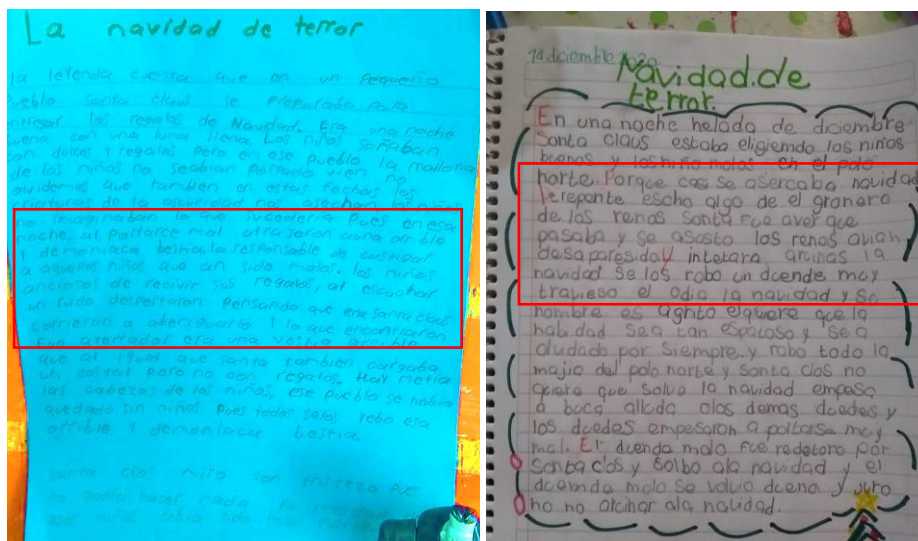 La navidad de terror
la leyenda cuenta que en un pequeño
pueblo santa claus se preparaba para
entregar los regalos de Navidad. Era una noche
buena con una luna llena. Los niños soñaban
con dulces y regalos pero en ese pueblo la malloria
de los niños no seabian portado vien no
olvidemos que tambien en estas fechas las
criaturas de la oscuridad nos asechan los niños
no imaginaban lo que sucederia pues en esa
noche, al portarce mal atrajeron auna orrible
y demoniaca bestia, la responsable de castigar
a aquellos niños que an sido malos. los niños
anciosos de recivir sus regalos, al escuchar
un ruido despertaron pensando que era santa claus
corrieron a aberiguarlo y lo que encontraron
fue aterrador era una vestia orrible
que al igual que santa tambien cargaba
un costal pero no con regalos. Hay metia
las cabezas de los niños, ese pueblo se habia
quedado sin niños pues todos selos robo esa
orrible y demoniaca bestia
santa clos miro con tristeza pues
no podia hacer nada
esos niños
14 diciembre
Navidad.de
terror.
En una noche helada de diciembre
Santa claus estaba eligiendo los niños
buenos y los niño malos en el polo
norte. Porque casi se asercaba navidad
derepente escho algo de el granero
de los renos santa fue aver que
pasaba y se asosto los renos avian
desaparesido y intetara, aruinas la
navidad se los robo un dcende muy
travieso el odia la navidad y su
nombre es aghito elquiere que la
habidad sea tan espatosa y sea
oludado por siempre. y robo todo la
majia del polo norte y Santa clos no
qeiere que salva la navidad empesa
a boca alleda olos demas dcedes y
los dcedes empesaron a poltarse moy
mal. El dcende malo fue redotoro por
Santa clos y Solbo ala navidad y el
dcemda malo se volvio dcena y juro
ho no alcihar ala navidad.